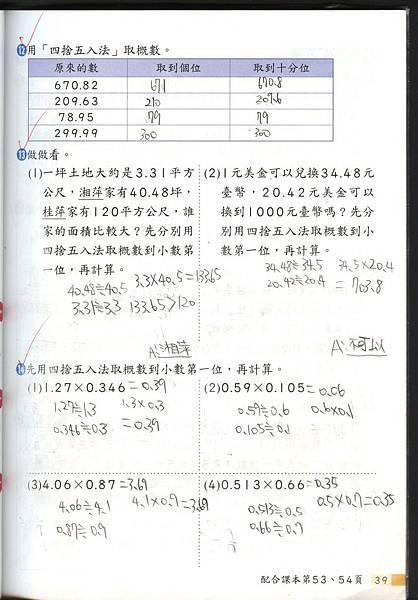 ⑫用「四捨五入法」取概數。
原來的數 取到個位 取到十分位
670.82 671 670.8
209.63 210 209.6
78.95 79 79
299.99 300 300
⑬做做看。
(1)一坪土地大約是3.31平方
公尺，湘萍家有40.48坪，
桂萍家有120平方公尺，誰
家的面積比較大？先分別用
四捨五入法取概數到小數第
一位，再計算。
40.48≒40.5 3.3×40.5=133.65
3.31≒3.3 133.65>120
A:湘萍
(2)1元美金可以兌換34.48元
臺幣，20.42元美金可以
換到1000元臺幣嗎？先分
別用四捨五入法取概數到小
數第一位，再計算。
34.48≒34.5 34.5×20.4
20.42≒20.4 =703.8
A:不可以
⑭先用四捨五入法取概數到小數第一位，再計算。
(1)1.27×0.346=0.39
1.27≒1.3 1.3×0.3
0.346≒0.3 =0.39
(2)0.59×0.105=0.06
0.59≒0.6 0.6×0.1
0.105≒0.1
(3)4.06×0.87=3.69
4.06≒4.1 4.1×0.9=3.69
0.87≒0.9
(4)0.513×0.66=0.35
0.513≒0.5 0.5×0.7=0.35
0.66≒0.7
配合課本第53、54頁 39